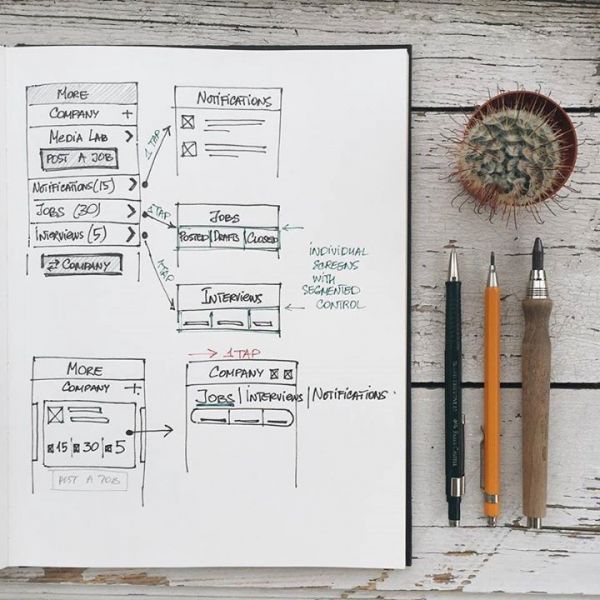 MORE
COMPANY +
MEDIA LAB >
POST A JOB
NOTIFICATIONS (15) >
JOBS (30) >
INTERVIEWS (5) >
⇄ COMPANY
1 TAP
NOTIFICATIONS
1 TAP
JOBS
POSTED | DRAFTS | CLOSED
1 TAP
INTERVIEWS
INDIVIDUAL
SCREENS
WITH
SEGMENTED
CONTROL
MORE
COMPANY +
15 30 5
POST A JOB
→ 1 TAP
COMPANY
JOBS | INTERVIEWS | NOTIFICATIONS